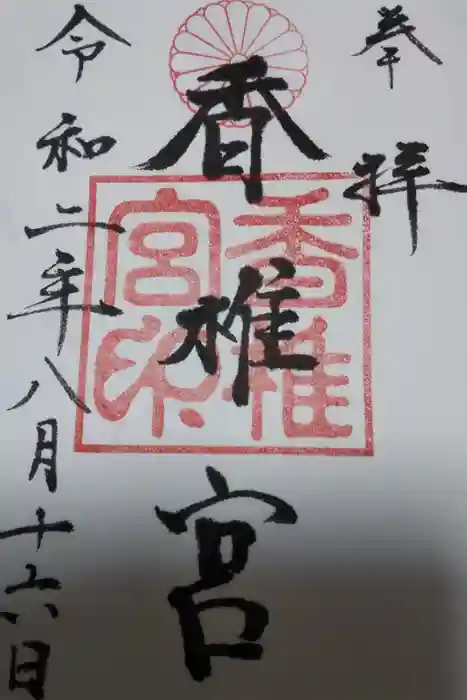 奉拝
香椎宮
香椎宮印
令和二年八月十六日